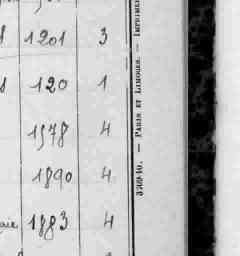 1201 3
120 1
1978 4
1890 4
1883 4
33694-10. — PARIS ET LIMOGES. — IMPRIMER